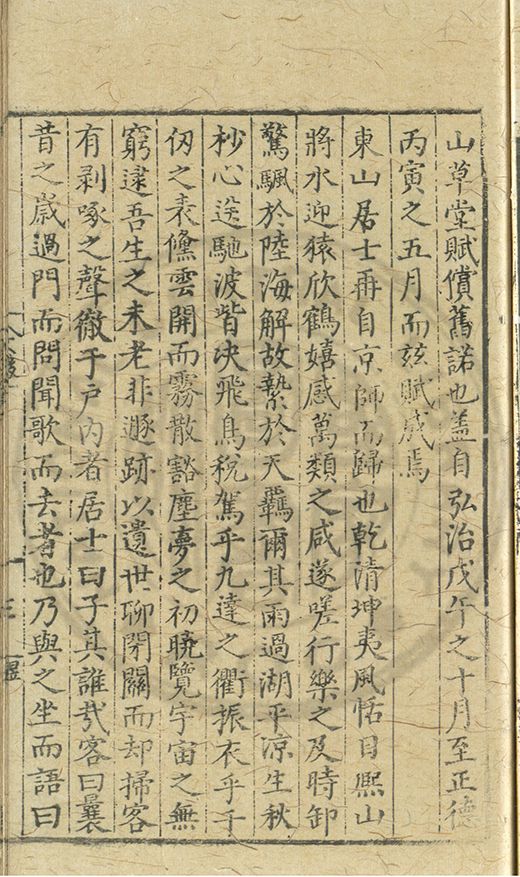 山草堂賦償舊諾也蓋自弘治戊午之十月至正德
丙寅之五月而兹賦成焉
東山居士再自京師而歸也乾清坤夷風恬日熈山
將水迎猿欣鶴嬉感萬類之咸遂嗟行樂之及時卸
驚颿於陸海解故縶於天羈爾其雨過湖平凉生秋
杪心送馳波眥决飛鳥稅駕乎九逵之衢振衣乎千
仭之表儵雲開而霧散豁塵夢之初曉覽宇宙之無
窮逮吾生之未老非遯跡以遺世聊閉關而却掃客
有剥啄之聲徹于戶内者居士曰子其誰㢤客曰曩
昔之歲過門而問聞歌而去者也乃與之坐而語曰